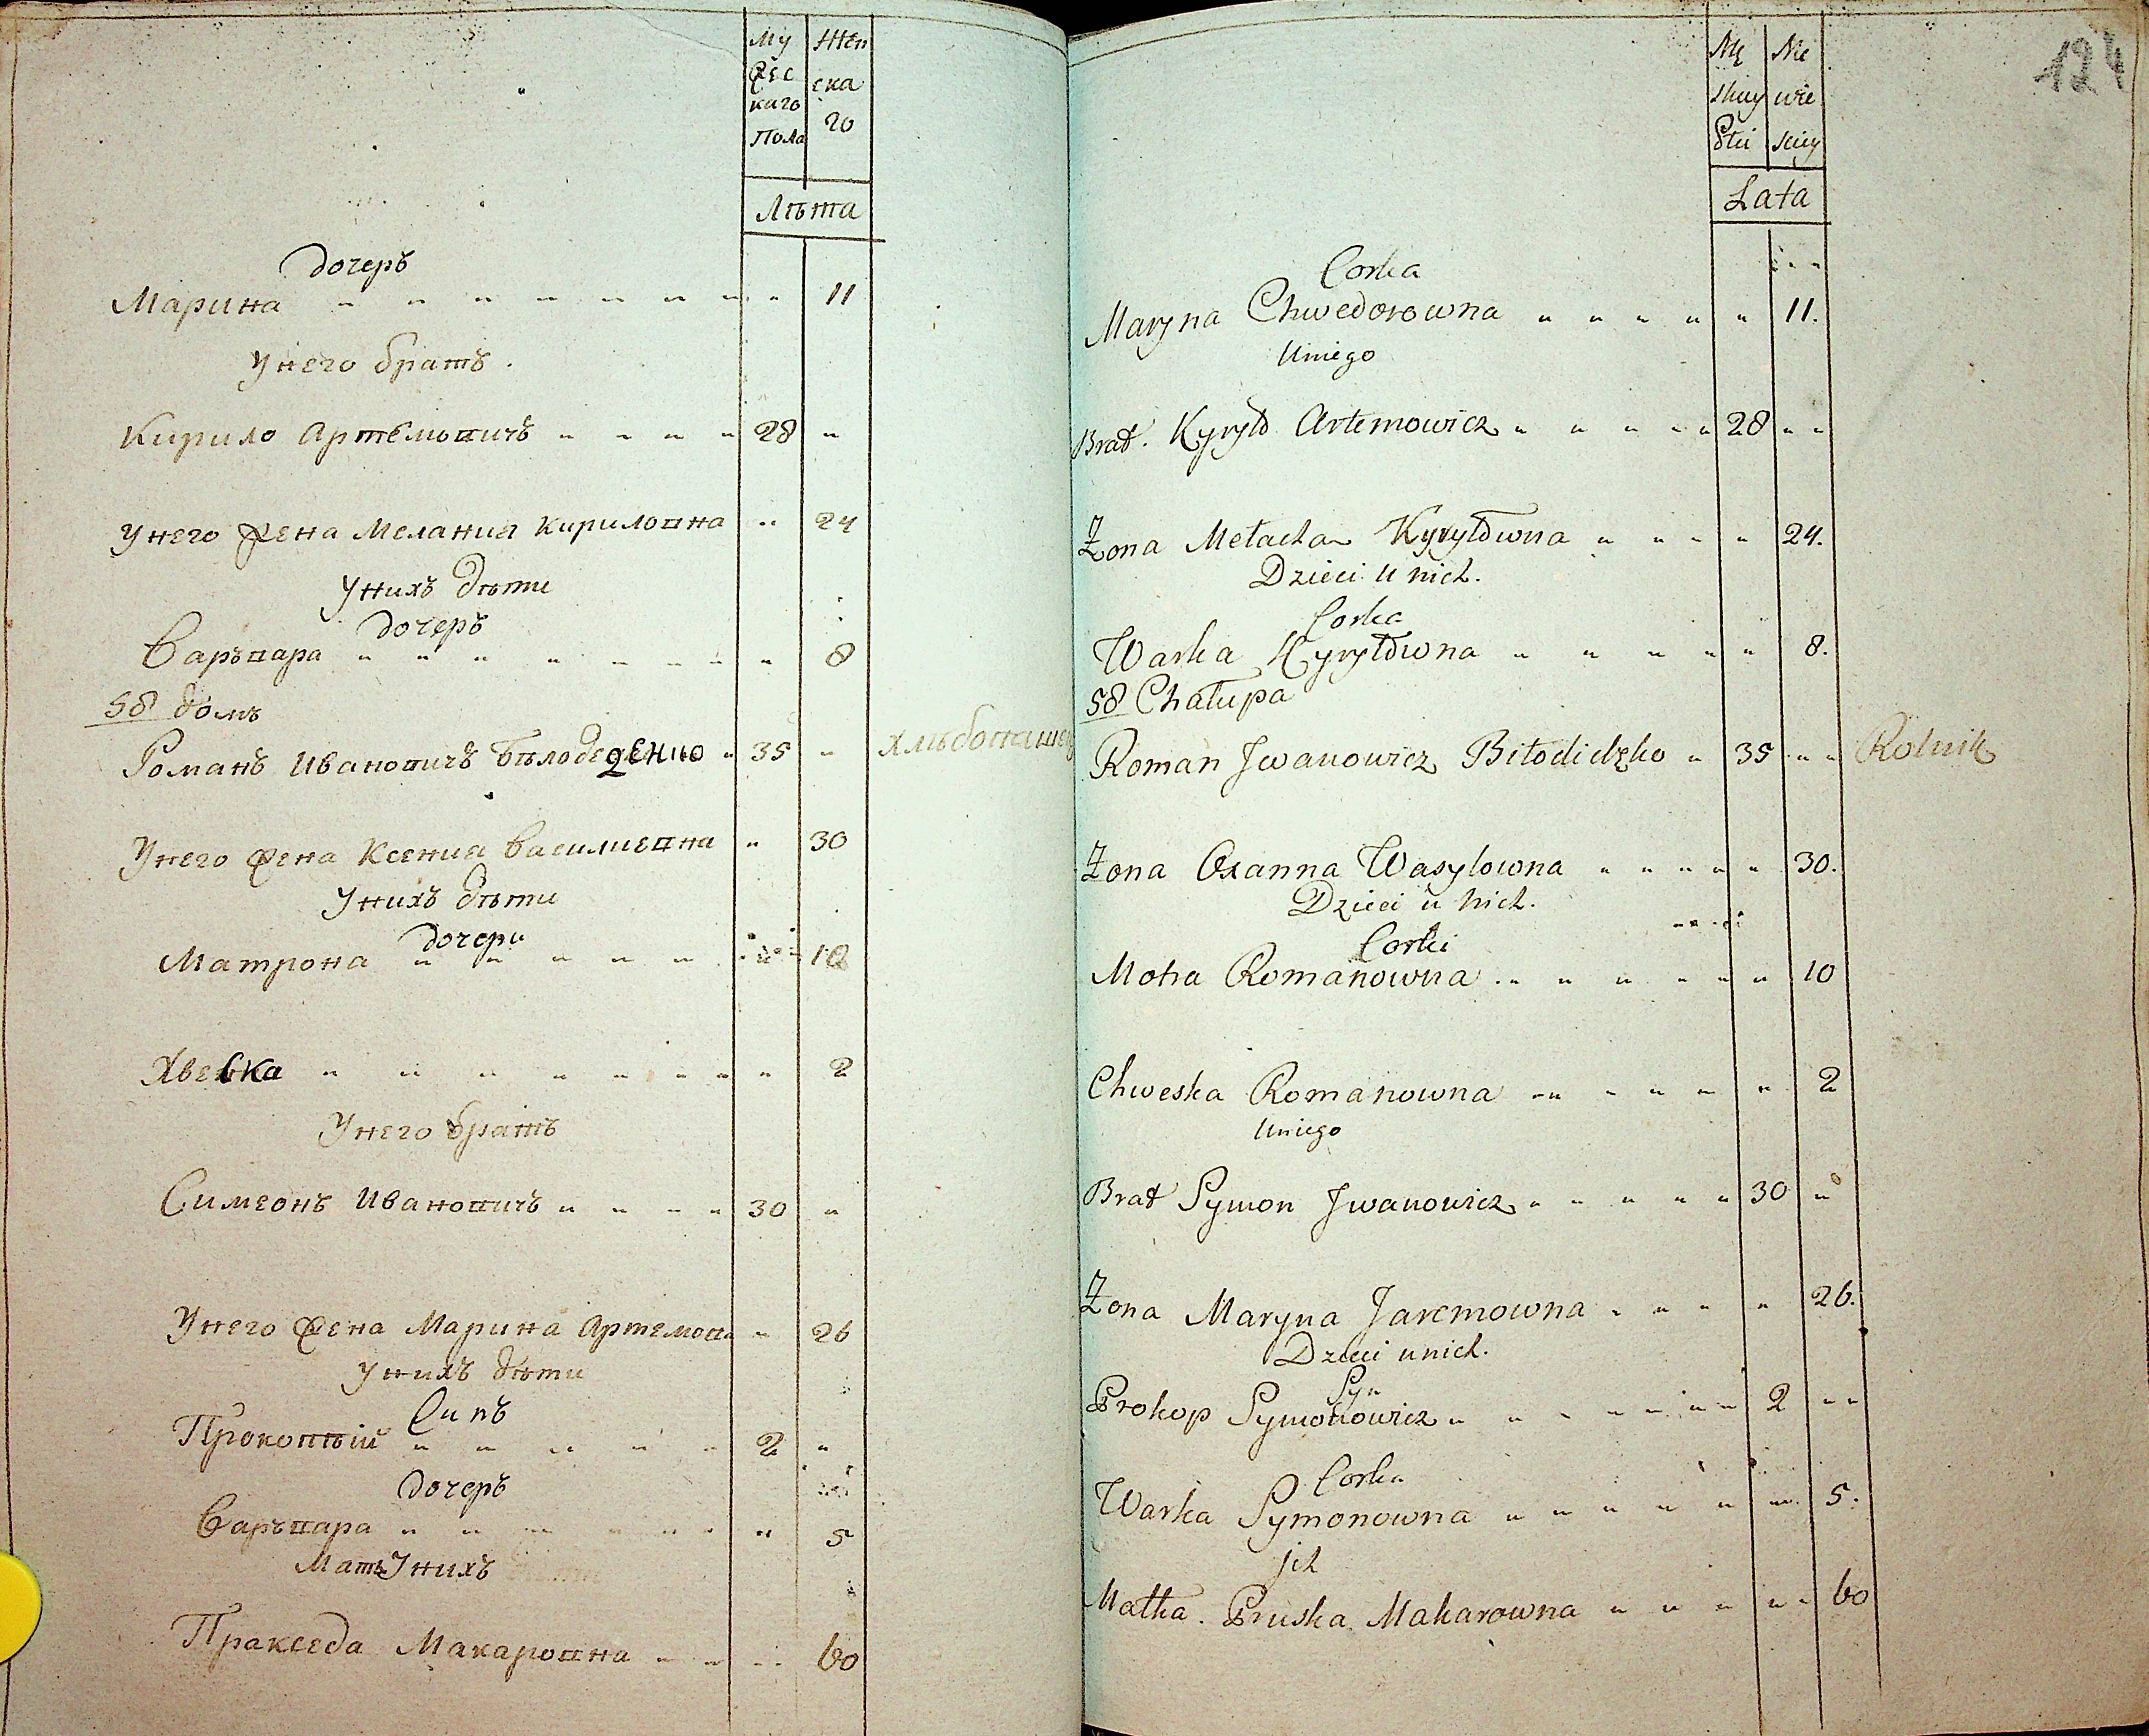 Му Жен
жес ска
каго го
Пола
Лѣта
дочерь
Марина " " " " " " " " 11
Унего братъ.
Кирило Артемовичъ " " " " 28 "
Унего жена Мелания Кириловна " 24
Унихъ дѣти
дочерь
Варъвара " " " " " " " " 8
58 домъ
Романъ Ивановичъ Бѣлодеденко " 35 " хлѣбопашец
Унего жена Ксения Василиевна " 30
Унихъ дѣти
дочери
Матрона " " " " " " 10
Хвеська " " " " " " " " 2
Унего братъ
Симеонъ Ивановичъ " " " " 30 "
Унего жена Марина Артемовн " 26
Унихъ дѣти
Синъ
Прокопѣй " " " " " " 2 "
дочерь
Варъвара " " " " " " " 5
Мать Унихъ
Пракседа Макаровна " " " 60
124
Mę Nie
skiey wie
Płci skiey
Lata
Corka
Maryna Chwedorowna " " " " " 11.
Uniego
Brat. Kyryło Artemowicz " " " " " 28 " "
Żona Mełacha Kyryłowna " " " " 24.
Dzieci u nich.
Corka
Warka Kyryłowna " " " " " 8.
58 Chałupa
Roman Jwanowicz Biłodidzko " 35 " " Rolnik
Żona Oxanna Wasylowna " " " " " 30.
Dzieci u nich.
Corki
Motra Romanowna " " " " " " " 10
Chweska Romanowna " " " " " " 2
Uniego
Brat Symon Jwanowicz " " " " " " 30 "
Żona Maryna Jaremowna " " " " 26.
Dzieci unich.
Syn
Prokop Symonowicz " " " " " " " 2 " "
Corka
Warka Symonowna " " " " " " " 5.
jch
Matka. Pruska Makarowna " " " " " 60